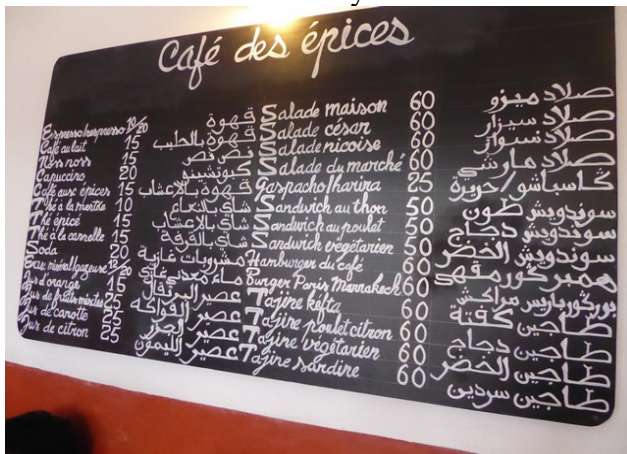 Café des épices
Espresso/nespresso 10/20 قهوة
Café au lait 15 قهوة بالحليب
Noss noss 15 نص نص
Capuccino 20 كبوتشينو
Café aux épices 15 قهوة بالاعشاب
Thé à la menthe 10 شاي بالنعناع
Thé épicé 15 شاي بالاعشاب
Thé à la cannelle 15 شاي بالقرفة
Soda 20 مشروبات غازية
Eau minéral/gazeuse ماء معدني غازي
Jus d'orange عصير البرتقال
Jus de fruits mixtes 25 عصير الفواكه
Jus de carotte 25 عصير الجزر
Jus de citron 25 عصير الليمون
Salade maison 60 صلاد ميزو
Salade césar 60 صلاد سيزار
Salade nicoise 60 صلاد نسوار
Salade du marché 60 صلاد مارشي
Gaspacho/harira 25 كاسباشو/حريرة
Sandwich au thon 50 سوندويش طون
Sandwich au poulet 50 سوندويش دجاج
Sandwich végétarien 50 سوندويش الخضر
Hamburger du café 60 همبركور مقهى
Burger Paris Marrakech 60 بوركورباريس مراكش
Tajine kefta 60 طاجين كفتة
Tajine poulet citron 60 طاجين دجاج
Tajine végétarien 60 طاجين الخضر
Tajine sardine 60 طاجين سردين